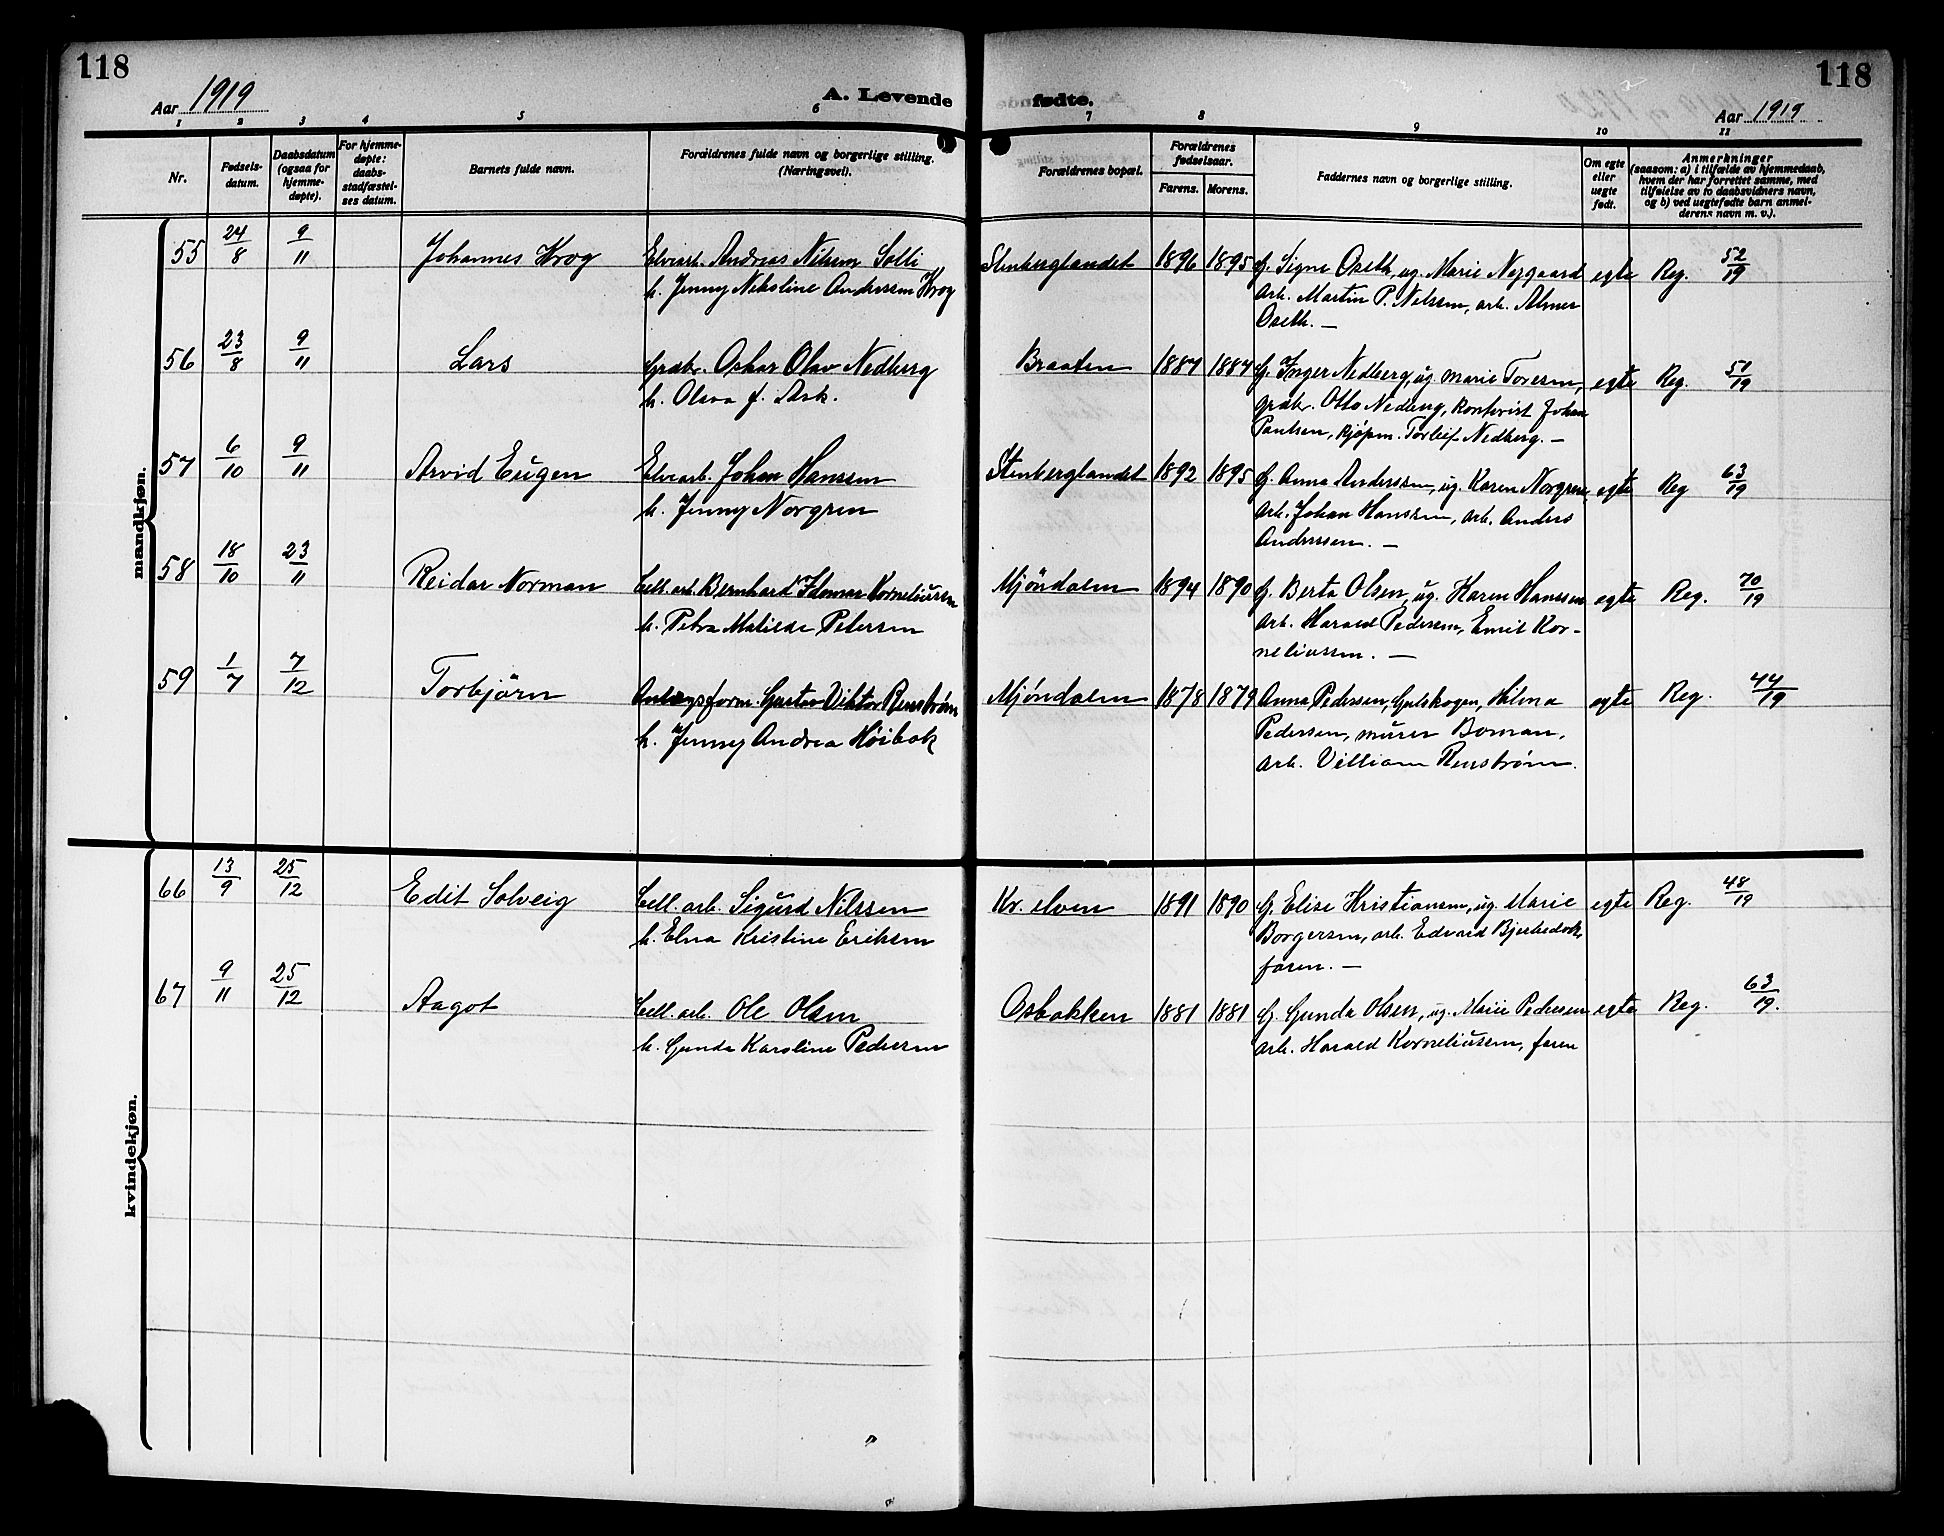 118
Aar 1919
A. Levende
fødte.
118
Aar 1919
1 2 3 4 5 6 7 8 9 10 11
Nr.
Fødsels-
datum.
Daabsdatum
(ogsaa for
hjemme-
døpte).
For hjemme-
døpte:
daabs-
stadfæstel-
ses datum.
Barnets fulde navn.
Forældrenes fulde navn og borgerlige stilling.
(Næringsvei).
Forældrenes bopæl.
Forældrenes
fødselsaar.
Farens. Morens.
Faddernes navn og borgerlige stilling.
Om egte
eller
uegte
født.
Anmerkninger
(saasom: a) i tilfælde av hjemmedaab,
hvem der har forrettet samme, med
tilføielse av to daabsvidners navn,
og b) ved uegtefødte barn anmel-
derens navn m. v.).
mandkjøn.
55 24/8 9/11 Johannes Krog Elvearb. Andreas Nilsen Solli Stenberglandet 1896 1895 G. Signe Oseth, ug. Marie Nygaard egte Reg. 52/19
h. Jenny Nikoline Anderssen Krog arb. Martin P. Nelssen, arb. Almer
Oseth. —
56 23/8 9/11 Lars Oskar Olav Nedberg Braaten 1887 1884 G. Inger Nedberg, ug. Marie Toresen, egte Reg. 51/19
h. Olava f. Ask. Otto Nedberg, kontorist Johan
Paulsen, kjøpm. Torleif Nedberg. —
57 6/10 9/11 Arvid Eugen Elvearb. Johan Hanssen Stenberglandet 1892 1895 G. Anna Anderssen, ug. Karen Norgren, egte Reg 63/19
h. Jenny Norgren arb. Johan Hanssen, arb. Anders
Anderssen. —
58 18/10 23/11 Reidar Norman Cell. arb. Bernhard Hilmar Korneliussen Mjøndalen 1894 1890 G. Berta Olsen, ug. Karen Hanssen egte Reg. 70/19
h. Petra Matilde Petersen arb. Harald Pedersen, Emil Kor-
neliussen. —
59 1/7 7/12 Torbjörn Anlægsform. Gustav Viktor Renstrøm Mjøndalen 1878 1879 Anna Pedersen, Gulskogen, Hilma egte Reg. 44/19
h. Jenny Andrea Höibak Pedersen, murer Boman,
arb. Villiam Renstrøm.
kvindekjøn.
66 13/9 25/12 Edit Solveig Cell. arb. Sigurd Nilssen Kr. elven 1891 1890 G. Elise Kristiansen, ug. Marie egte Reg. 48/19
h. Elna Kristine Eriksen Borgersen, arb. Edvard
faren. —
67 9/11 25/12 Aagot Cell. arb. Ole Olsen Osbakken 1881 1881 G. Gunda Olsen, ug. Marie Pedersen egte Reg. 63/19.
h. Gunda Karoline Pedersen arb. Harald Korneliussen, faren